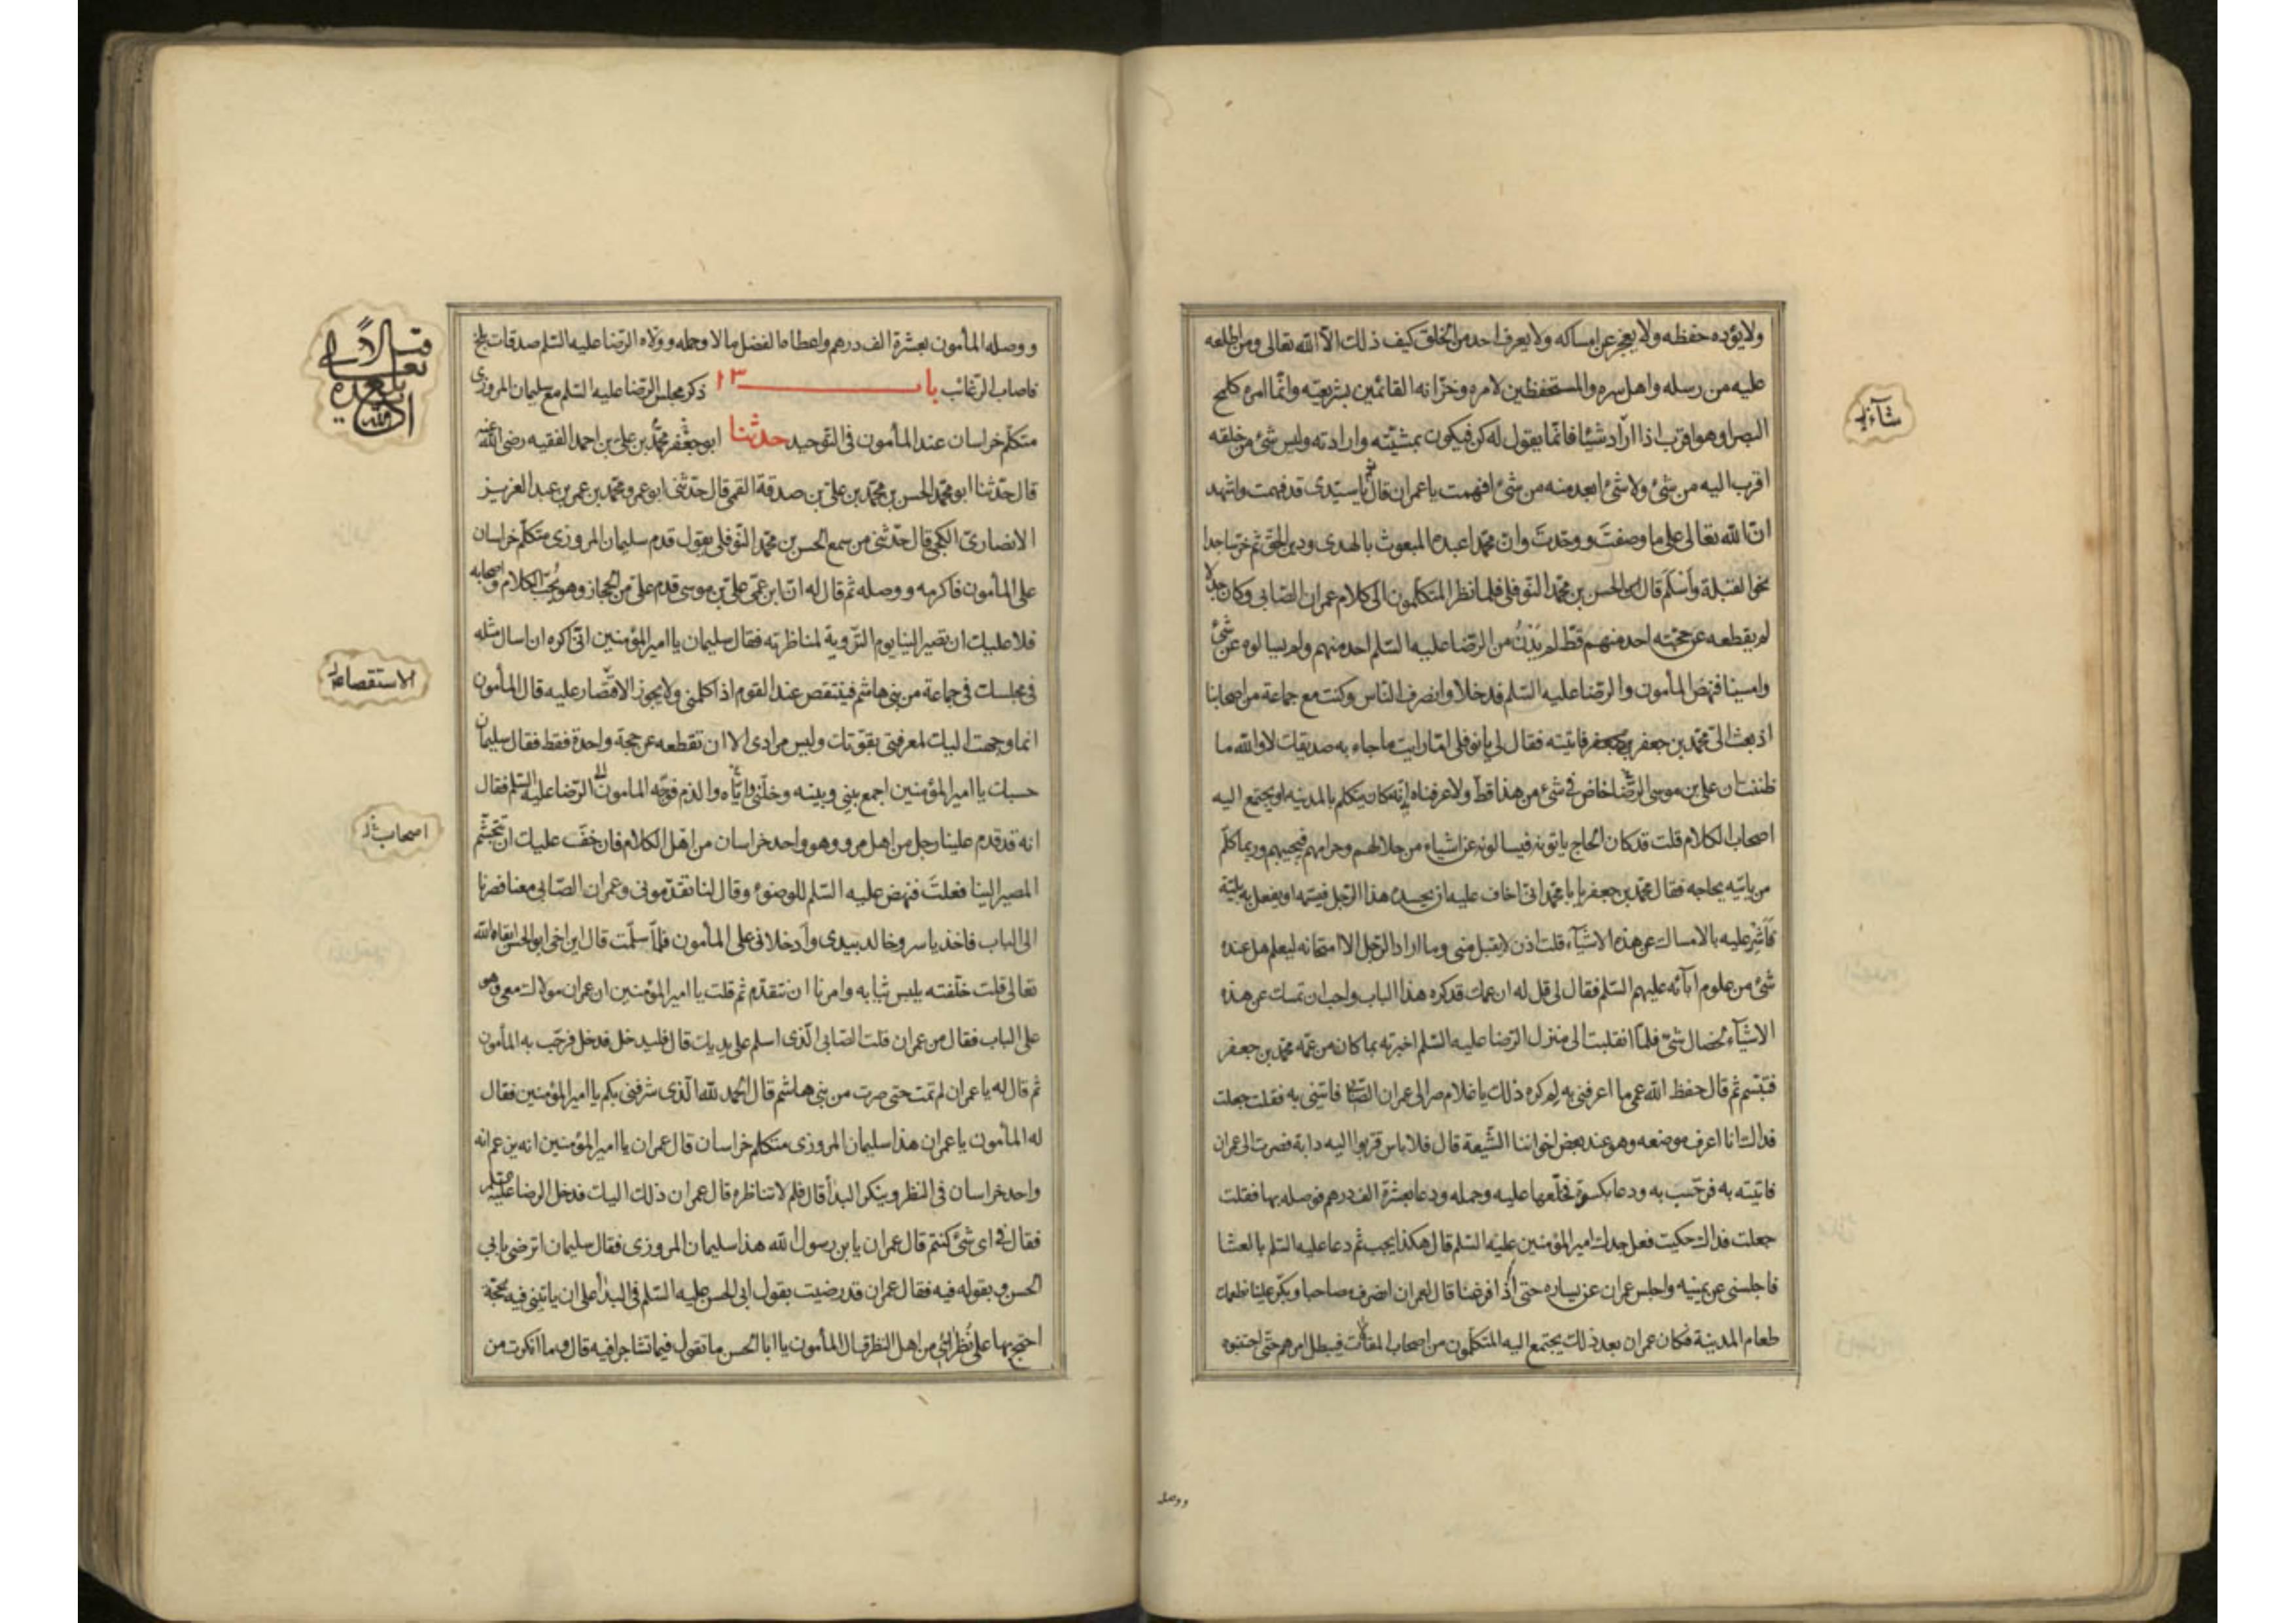 ولا يؤده حفظه ولا يعجز عن امساكه ولا يعرف احد من الخلق كيف ذلك الا الله تعالى ومن اطلعه
عليه من رسله واهل سره والمستحفظين لامره وخزانه القائمين بشريعته وانما امره كلمح
البصر او هو اقرب اذا اراد شيئا فانما يقول له كن فيكون بمشيته وارادته وليس شئ من خلقه
اقرب اليه من شئ ولا شئ ابعد منه من شئ افهمت يا عمران قال يا سيدى قد فهمت واشهد
ان الله تعالى على ما وصفت ووحدت وان محمدا عبده المبعوث بالهدى ودين الحق ثم خر ساجدا
نحو القبلة واسلم قال الحسن بن محمد النوفلى فلما نظر المتكلمون الى كلام عمران الصابى وكان جدلا
لم يقطعه عن حجته احد منهم قط لم يدن من الرضا عليه السلم احد منهم ولم يسالوه عن شئ
وامسينا فنهض المأمون والرضا عليه السلم فدخلا وانصرف الناس وكنت مع جماعة من اصحابنا
اذ بعث الى محمد بن جعفر فاتيته فقال لى يا نوفلى اما رايت ما جاء به صديقك لا والله ما
ظننت ان على بن موسى الرضا خاض فى شئ من هذا قط ولا عرفناه به انه كان يتكلم بالمدينة او يجتمع اليه
اصحاب الكلام قلت قد كان الحاج ياتونه فيسالونه عن اشياء من حلالهم وحرامهم فيجيبهم وربما كلم
من ياتيه يحاجه فقال محمد بن جعفر يا با محمد انى اخاف عليه ان يحسده هذا الرجل فيسمه او يفعل به بلية
فاشر عليه بالامساك عن هذه الاشيآء قلت اذن لا يقبل منى وما اراد الرجل الا امتحانه ليعلم هل عنده
شئ من علوم آبائه عليهم السلم فقال لى قل له ان عمك قد كره هذا الباب واحب ان تمسك عن هذه
الاشيآء لخصال شتى فلما انقلبت الى منزل الرضا عليه السلم اخبرته بما كان من عمه محمد بن جعفر
فتبسم ثم قال حفظ الله عمى ما اعرفنى به لم كره ذلك يا غلام صر الى عمران الصابى فاتينى به فقلت جعلت
فداك انا اعرف موضعه وهو عند بعض اخواننا الشيعة قال فلا باس قربوا اليه دابة فصرت الى عمران
فاتيته به فرحب به ودعا بكسوة فخلعها عليه وحمله ودعا بعشرة الف درهم فوصله بها فقلت
جعلت فداك حكيت فعل جدك امير المؤمنين عليه السلم قال هكذا يجب ثم دعا عليه السلم بالعشا
فاجلسنى عن يمينه واجلس عمران عن يساره حتى اذا فرغنا قال لعمران انصرف مصاحبا وبكر علينا نطعمك
طعام المدينة فكان عمران بعد ذلك يجتمع اليه المتكلمون من اصحاب المقالات فيبطل امرهم حتى اجتنبوه
ووصله
ووصله المأمون بعشرة الف درهم واعطاه الفضل مالا وحمله وولاه الرضا عليه السلم صدقات بلخ
فاصاب الرغائب باب ١٣ ذكر مجلس الرضا عليه السلم مع سليمان المروزى
متكلم خراسان عند المأمون فى التوحيد حدثنا ابو جعفر محمد بن على بن احمد الفقيه رضى الله عنه
قال حدثنا ابو محمد الحسن بن محمد بن على بن صدقة القمى قال حدثنى ابو عمرو محمد بن عمر بن عبد العزيز
الانصارى الكجى قال حدثنى من سمع الحسن بن محمد النوفلى يقول قدم سليمان المروزى متكلم خراسان
على المأمون فاكرمه ووصله ثم قال له ان ابن عمى على بن موسى قدم على من الحجاز وهو يحب الكلام واصحابه
فلا عليك ان تصير الينا يوم التروية لمناظرته فقال سليمان يا امير المؤمنين انى اكره ان اسال مثله
فى مجلسك فى جماعة من بنى هاشم فينتقص عند القوم اذا كلمنى ولا يجوز الاقتصار عليه قال المأمون
انما وجهت اليك لمعرفتى بقوتك وليس مرادى الا ان تقطعه عن حجة واحدة فقط فقال سليمان
حسبك يا امير المؤمنين اجمع بينى وبينه وخلنى واياه والذم فوجه المامون الى الرضا عليه السلم فقال
انه قد قدم علينا رجل من اهل مرو وهو واحد خراسان من اهل الكلام فان خف عليك ان تتجشم
المصير الينا فعلت فنهض عليه السلم للوضوء وقال لنا تقدمونى وعمران الصابى معنا فصرنا
الى الباب فاخذ ياسر وخالد بيدى وادخلانى على المأمون فلما سلمت قال اين اخى ابو الحسن ابقاه الله
تعالى قلت خلفته يلبس ثيابه وامرنا ان نتقدم ثم قلت يا امير المؤمنين ان عمران مولاك معى وهو
على الباب فقال من عمران قلت الصابى الذى اسلم على يديك قال فليدخل فدخل فرحب به المأمون
ثم قال له يا عمران لم تمت حتى صرت من بنى هاشم قال الحمد لله الذى شرفنى بكم يا امير المؤمنين فقال
له المأمون يا عمران هذا سليمان المروزى متكلم خراسان قال عمران يا امير المؤمنين انه يزعم انه
واحد خراسان فى النظر وينكر البدأ قال فلم لا تناظره قال عمران ذلك اليك فدخل الرضا عليه السلم
فقال فى اى شئ كنتم قال عمران يا بن رسول الله هذا سليمان المروزى فقال سليمان اترضى بابى
الحسن وبقوله فيه فقال عمران قد رضيت بقول ابى الحسن عليه السلم فى البدأ على ان ياتينى فيه بحجة
احتج بها على نظرائى من اهل النظر قال المأمون يا ابا الحسن ما تقول فيما تشاجرا فيه قال وما انكرت من
الاستقصاء
اصحاب